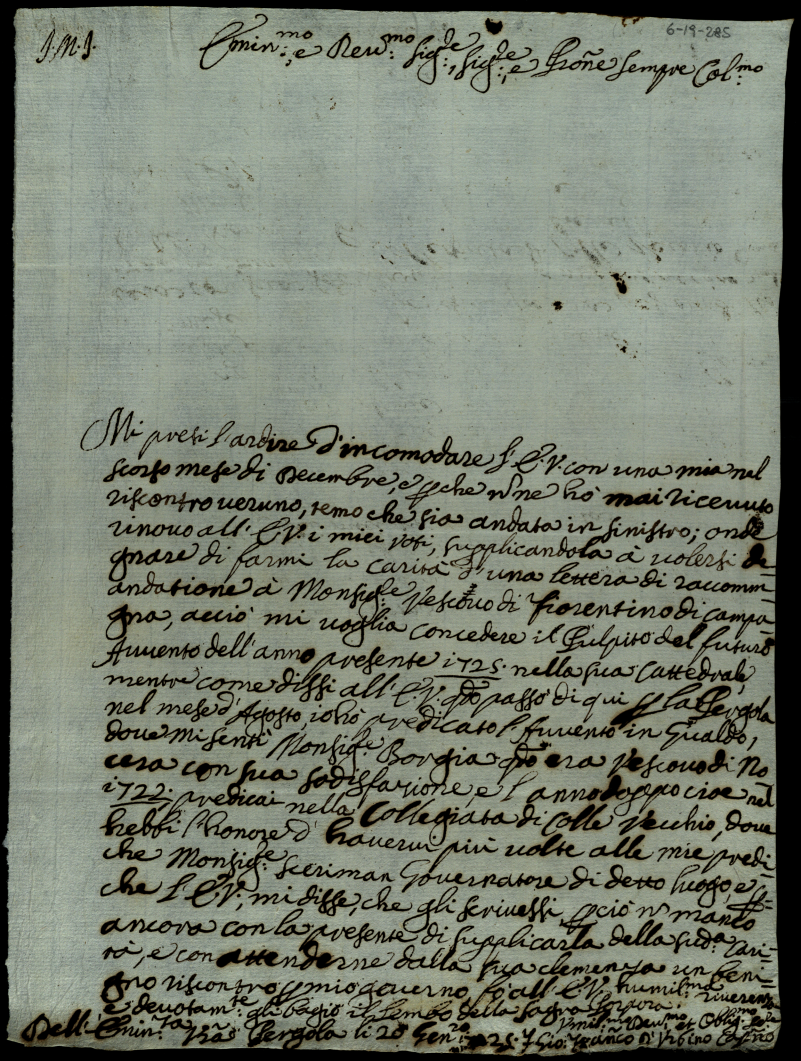 6-19-285
J.M.J.
Emin.mo e Reu.mo Sig.re, Sig.re, e Prone sempre Col.mo
Mi presi l'ardire d'incomodare l'E.V. con una mia nel
scorso mese di Decembre, e pche nne ho mai riceuuto
riscontro veruno, temo che sia andata in sinistro; onde
rinouo all'E.V. i miei voti, supplicandola à volersi de=
gnare di farmi la carità d'una lettera di raccomm=
andatione à Monsig.re Vescouo di fiorentino di campa=
gna, acciò mi voglia concedere il Pulpito del futuro
Auuento dell'anno presente 1725. nella sua Cattedrale,
mentre come dissi all'E.V. qdo passò di qui p la Pergola
nel mese d'Agosto, io hò predicato l'Auuento in Gualdo,
doue mi sentì Monsig.re Borgia qdo era Vescouo di No
cera con sua sadisfazione, e l'anno doppo cioe nel
1722. predicai nella Collegiata di Colle Vecchio, doue
hebbi l'honore d'haverui più uolte alle mie predi=
che Monsig.re Sceriman Gouernatore di detto luogo, e
che l'E.V. mi disse, che gli scriuessi, pciò n manco
ancora con la presente di supplicarla della sud.a Cari=
tà, e con attenderne dalla sua clemenza un beni=
gno riscontro p mio gouerno fò all'E.V. humil.ma riuerenza
e deuotam.te gli bagio il lembo della sagra Porpora.
Dell'Emin.za V.ra Pergola li 20 Gen.ro 1725.
Vmil.mo Deu.mo et Oblig.mo
Gio: Franco d'Vrbino